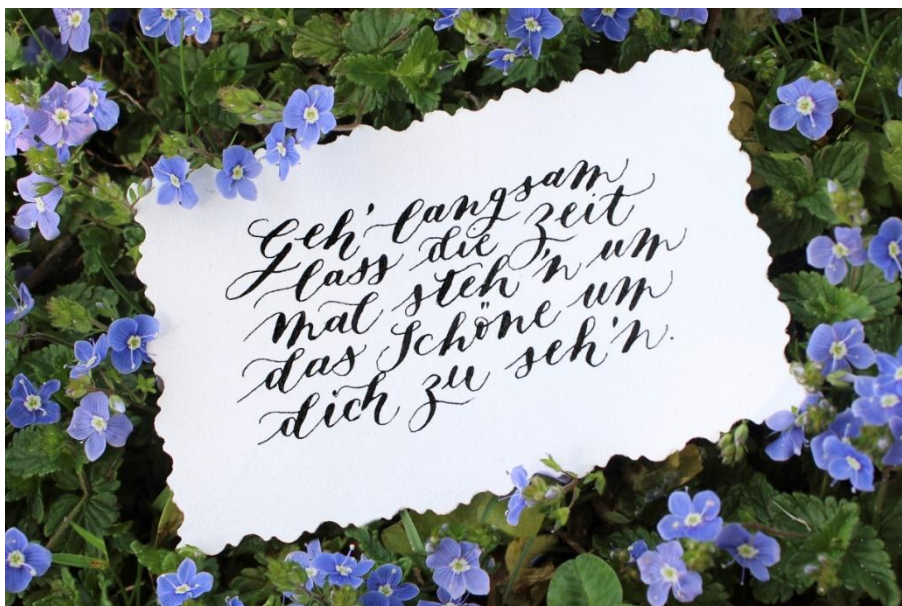 Geh' langsam
lass die zeit
mal steh'n um
das Schöne um
dich zu seh'n.